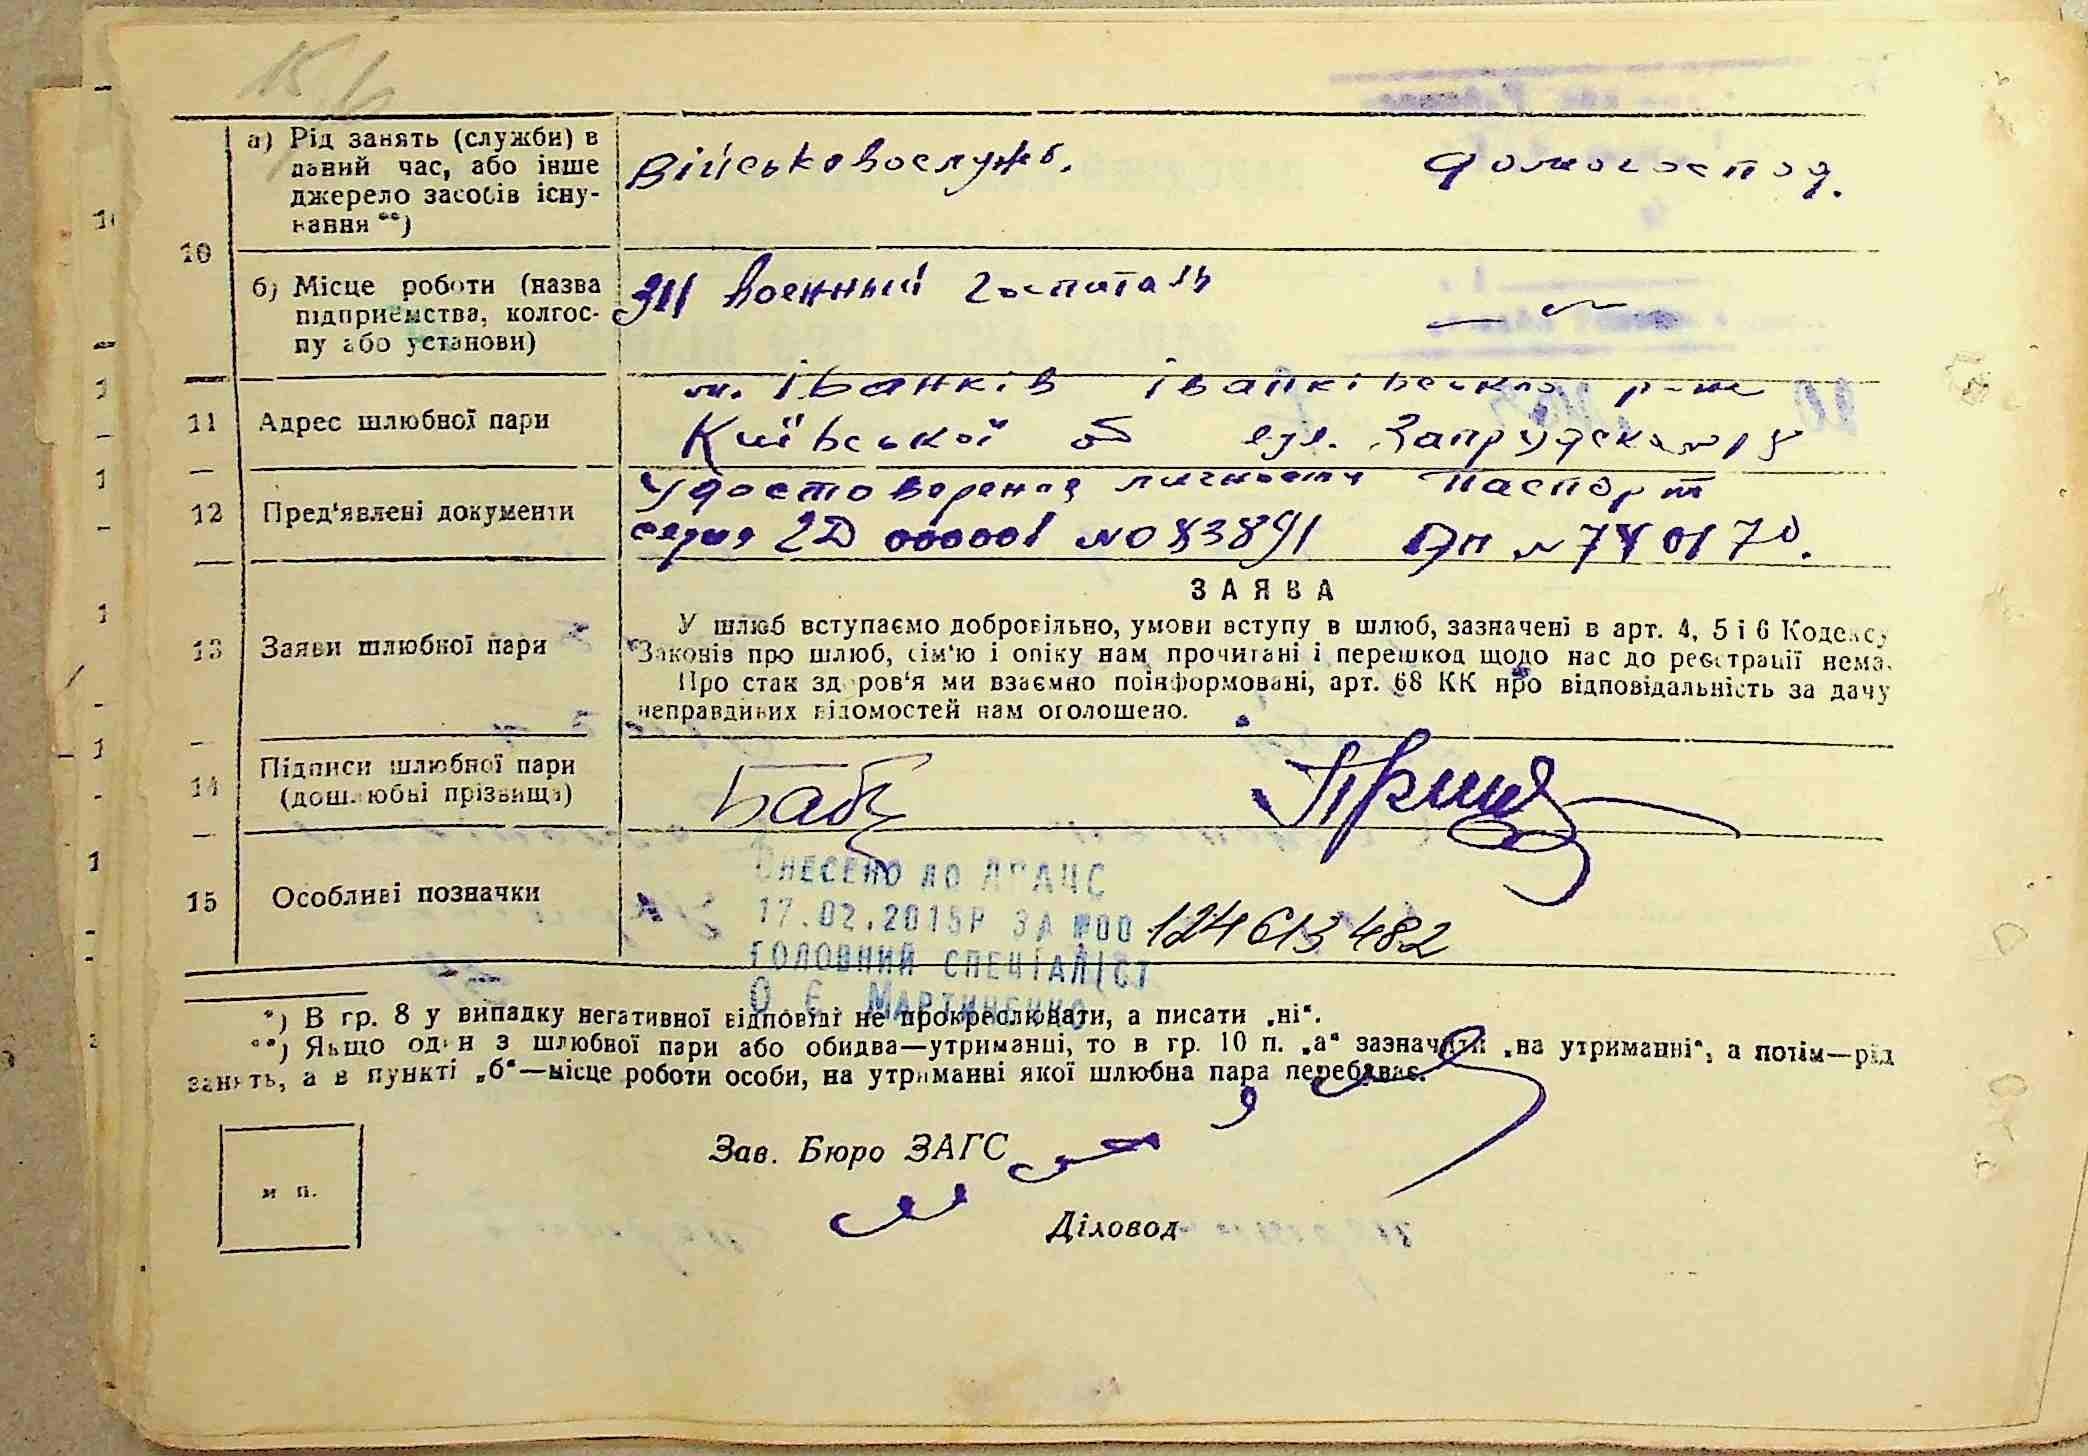 15
10
а) Рід занять (служби) в
даний час, або інше
джерело засобів існу-
вання **)
військовослужб. домогоспод.
б) Місце роботи (назва
підприємства, колгос-
пу або установи)
311 военный госпиталь —
11 Адрес шлюбної пари
м. Іванків Іванківського р-ну
Київської об вул. Запрудська
12 Пред'явлені документи
удостоверение личности паспорт
серия 2D 000001 № 083891 № 740170.
13 Заяви шлюбної пари
ЗАЯВА
У шлюб вступаємо добровільно, умови вступу в шлюб, зазначені в арт. 4, 5 і 6 Кодексу
Законів про шлюб, сім'ю і опіку нам прочитані і перешкод щодо нас до реєстрації нема.
Про стан здоров'я ми взаємно поінформовані, арт. 68 КК про відповідальність за дачу
неправдивих відомостей нам оголошено.
14 Підписи шлюбної пари
(дошлюбні прізвища)
15 Особливі позначки
ВНЕСЕНО ДО ДРАЦС
17.02.2015Р ЗА №00 124613482
ГОЛОВНИЙ СПЕЦІАЛІСТ
О Є МАРТИНЕНКО
*) В гр. 8 у випадку негативної відповіді не прокреслювати, а писати „ні“.
**) Якщо один з шлюбної пари або обидва—утриманці, то в гр. 10 п. „а“ зазначити „на утриманні“, а потім—рід
занять, а в пункті „б“—місце роботи особи, на утриманні якої шлюбна пара перебуває.
Зав. Бюро ЗАГС
м п.
Діловод